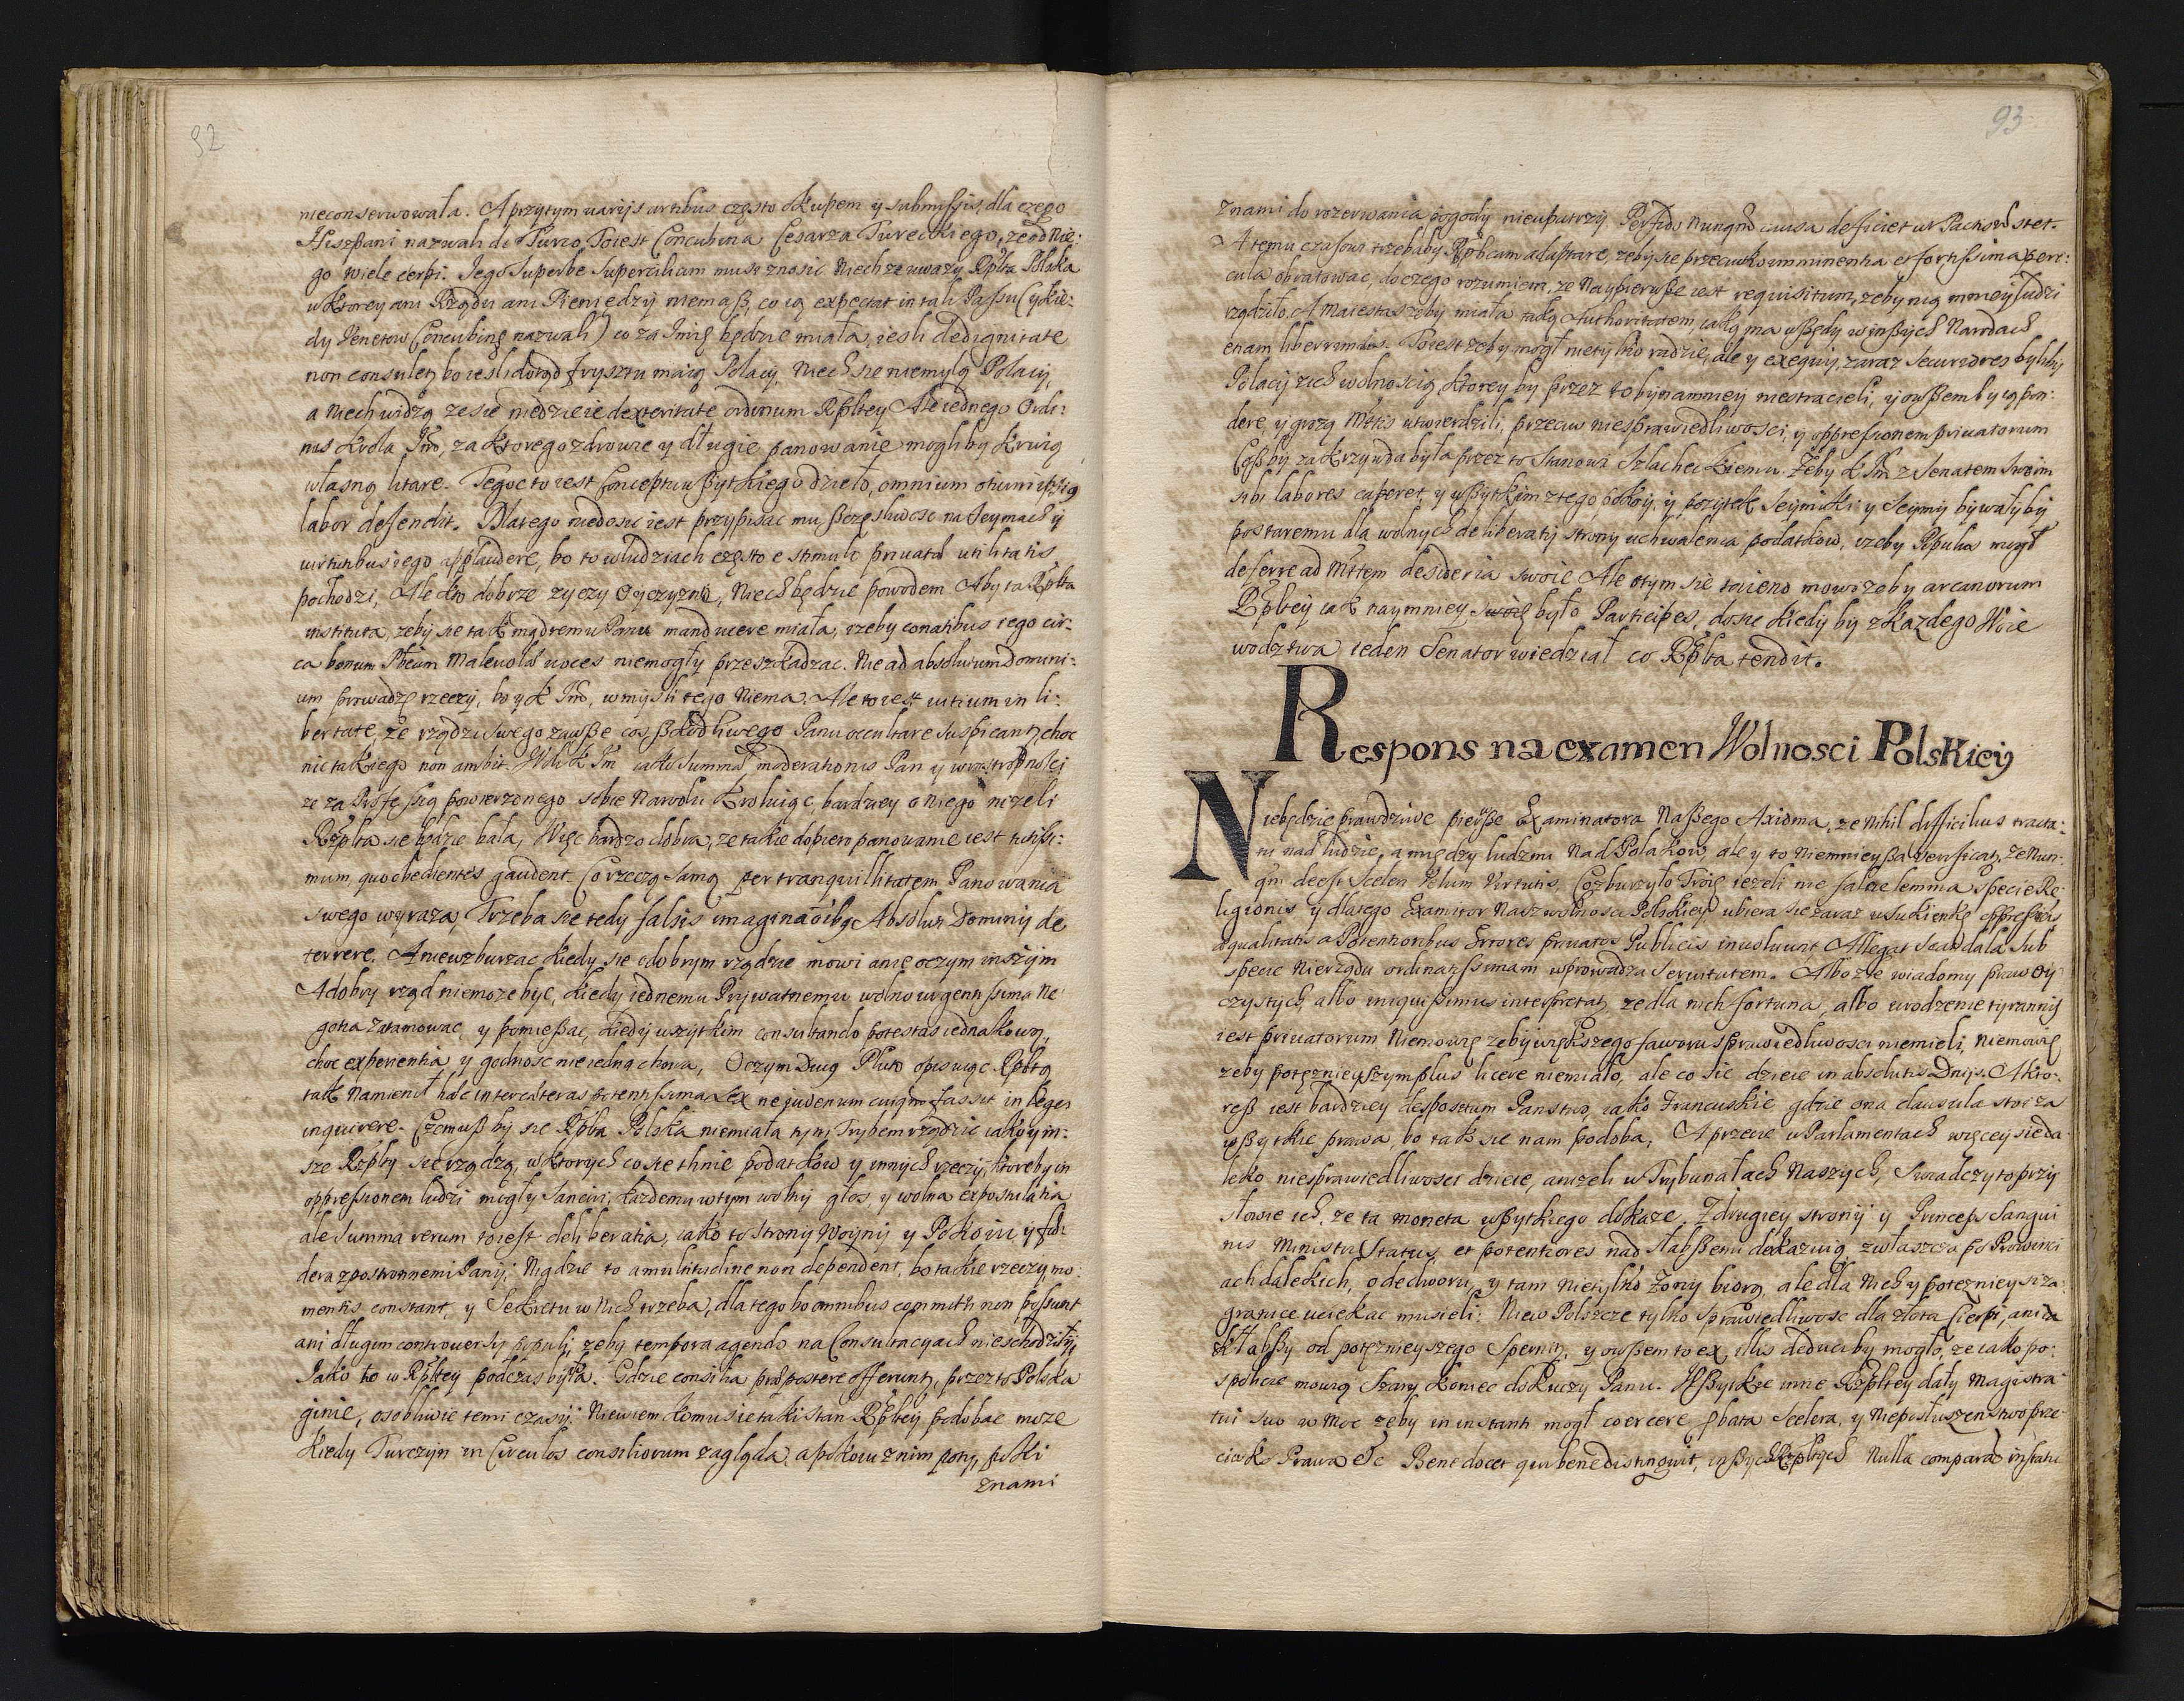 92
nieconserwowała. A przytym varijs artibus często okupem y submissis, dla czego
Hiszpani nazwali de Turco, To iest Concubina Cesarza Tureckiego, ze od nie:
go wiele cierpi. Jego Superbe Supercilium musi znosic Niech ze uwazy Rplta Polska
w ktorey ani Rządu ani Pieniędzy niemasz, co ią expectat in tali Passu (y kie:
dy Venetow Concubiną nazwali) co za Imię będzie miała, iesli de dignitate
non consulet, bo iesli dotąd frysztu maią Polacy, Niech sie niemylą Polacy,
a Niech widzą ze sie niedzieie dexteritate ordinum Rpltey Ale iednego Ordi:
nis Krola Jmo, za ktorego zdrowie y długie panowanie mogliby krwią
własną litare. Tegoc to iest Conceptu wszytkiego dzieło, omnium otium ipsius
labor defendit. Dlatego niedosic iest przypisac mu szczęsliwosc na Seymach y
virtutibus iego applaudere, bo to w ludziach często e stimulo privatae utilitatis
pochodzi, Ale kto dobrze zyczy Oyczyznie, Niech będzie powodem Aby ta Rplta
instituta, zeby sie tak mądremu Panu manducere miała, izeby conatibus iego cir:
ca bonum Pbcum Malevolae voces niemogły przeszkadzac. Nie ad absolutum Domini:
um prowadzę rzeczy, bo y K Jmo, w mysli tego Niema. Ale to iest vitium in li:
bertate, ze rządzcswego zawsze cos szkodliwego Panu occultare suspicant, choc
nic takiego non ambit. Wszak K Jm iako Summae moderationis Pan y wroztropnosci
ze za Profession powierzonego sobie Narodu Kroluiąc, bardziey o niego nizeli
Rzplta sie będzie bała, Więc bardzo dobra, ze takie dopiero panowanie iest tutissi:
mum, quo obedientes gaudent. Co rzeczą samą per tranquillitatem Panowania
swego wyraza, Trzeba sie tedy falsis imaginaoibg Absoluti Dominij de
terrere. A niewzburzac kiedy sie o dobrym rządzie mowi anie o czym inszym
A dobry rząd niemoze byc, kiedy iednemu Prywatnemu wolno urgentissima Ne
gotia Zatamowac y pomieszac, kiedy wszytkim consultando potestas iednakowa,
choc experientia y godnosc nieiedna chowa, O czym Dwoy Plato opisuiąc Rpltą
tak Namienił haec inter caeteras potentissima Lex ne iuvenum cuiquam fas sit in leges
inquirere. Czemusz by sie Rplta Polska niemiała tym Trybem rządzic iako y in:
sze Rzplty sie rządzą, w ktorych co sie tknie podatkow y innych rzeczy, ktore by in
oppressionem ludzi mogły sanciri, kazdemu w tym wolny głos, y wolna expostulatia
ale Summa rerum to iest deliberatia, iako to strony Woyny y Pokoiu y foe:
dera z postronnemi Panij; Nigdzie to a multitudine non dependent, bo takie rzeczy mo:
mentis constant, y Sekretu w Nich trzeba, dla tego bo omnibus committi non possunt
ani długim controversij populi, zeby tempora agendo na Consultacyach nieschodziły
Jako to w Rpltey podczas była. Gdzie consilia praepostere offerunt, przez to Polska
ginie, osobliwie temi czasy. Niewiem komu sie taki stan Rpltey podobac moze
Kiedy Turczyn in Circulos consiliorum zagląda, a pokoiu z nim poty, poki
znami
93
znami do rozerwania pogody nieupatrzy. Perfidis Nunqm causa deficiet ut Pactis stet.
A temu czasowi trzebaby Rpbcam adaptare, zeby sie przeciwko imminentia et fortissima peri:
cula obratowac, do czego rozumiem, ze Naypierwsze iest requisitum, zeby nią mniey ludzi
rządziło, A Maiestas zeby miała taką Authoritatem, iaką ma wszędy w inszych Narodach
etiam liberrimis. To iest zeby mogł nietylko radzic, ale y exequij, zaraz Securiores byliby
Polacy z ich wolnoscią, ktorey by przez to bynamniey niestracieli, y owszem by ią pon:
dere y grozą Mttis utwierdzili, przeciw niesprawiedliwosci, y oppressionem privatorum
Cosz by za krzywda była przez to Stanowi Szlacheckiemu. Zeby K Jm z Senatem Swoim
sibi labores caperet, y wszytkim z tego pokoy y pozytek Seymiki y Seymy bywałyby
postaremu dla wolnych deliberatij strony uchwalenia podatkow, izeby Rpulta mogł
deferre ad Mttem desideria swoie Ale o tym sie toieno mowi zeby arcanorum
Rpltey iak naymniey było Participes, dosic kiedy by z kazdego Woie
wodztwa ieden Senator wiedział co Rplta tendit.
Respons na examen Wolnosci Polskiey
Niebędzie prawdziwe piersze Examinatora Naszego Axioma, ze Nihil difficilius tracta:
tu nad ludzie, a między ludzmi Nad Polakow, ale y to Niemnieysza verificat, ze Nun:
qm deest Sceleri Velum Virtutis, Coz burzyło Troię iezeli nie false lemma specie Re
ligionis y dlatego Examinator Nasz wolnosci Polskiey, ubiera sie zaraz w sukienkę oppressae
aequalitatis a Potentioribus Errores privatos Publicis involvunt, Allegat Scandala Sub
specie Nierządu ordinatissimam wprowadza Servitutem. Albo zle wiadomy praw oy
czystych, albo iniquissimus interpretat, ze dla nich fortuna, albo urodzenie tyrannis
iest privatorum Niemowię zeby większego faworu sprawiedliwosci niemieli, Niemowię
zeby potęznieyszym plus licere niemiało, ale co sie dzieie in absolutis Dnijs. A kto:
resz iest bardziey despoticum Panstwo, iako Francuskie, gdzie ona clausula stoi za
wszytkie prawa, bo tak sie nam podoba; A przecie w Parlamentach więcey sie da
leko niesprawiedliwosci dzieie, anizeli w Trybunałach Naszych, Swiadczy to przy
słowie ich, ze ta moneta wszytkiego dokaze. Z drugiey strony y Princeps Sangui
nis Ministri Status et potentiores nad słabszemi dokazuią, zwłaszcza po Prowinci
ach dalekich, o de dworu, y tam Nietylko Zony biorą, ale dla Nich y potęzniey si za
granice uciekac musieli: Niew Polszcze tylko Sprawiedliwosc dla złota Cierpi, ani ta
słabszy od potęznieyszego Spernit, y owszem to ex illis deduci by mogło, ze iako po:
spolicie mowią Szary koniec dokuczy Panu. Wszytkie inne Rzpltey dały Magistra
tui swo w Moc zeby in instanti mogł coercere pbata Scelera, y Nieposłuszenstwo prze
ciwko Prawa etc Bene docet qui bene distinguit, inszych Rzpltych Nulla comparao in statu